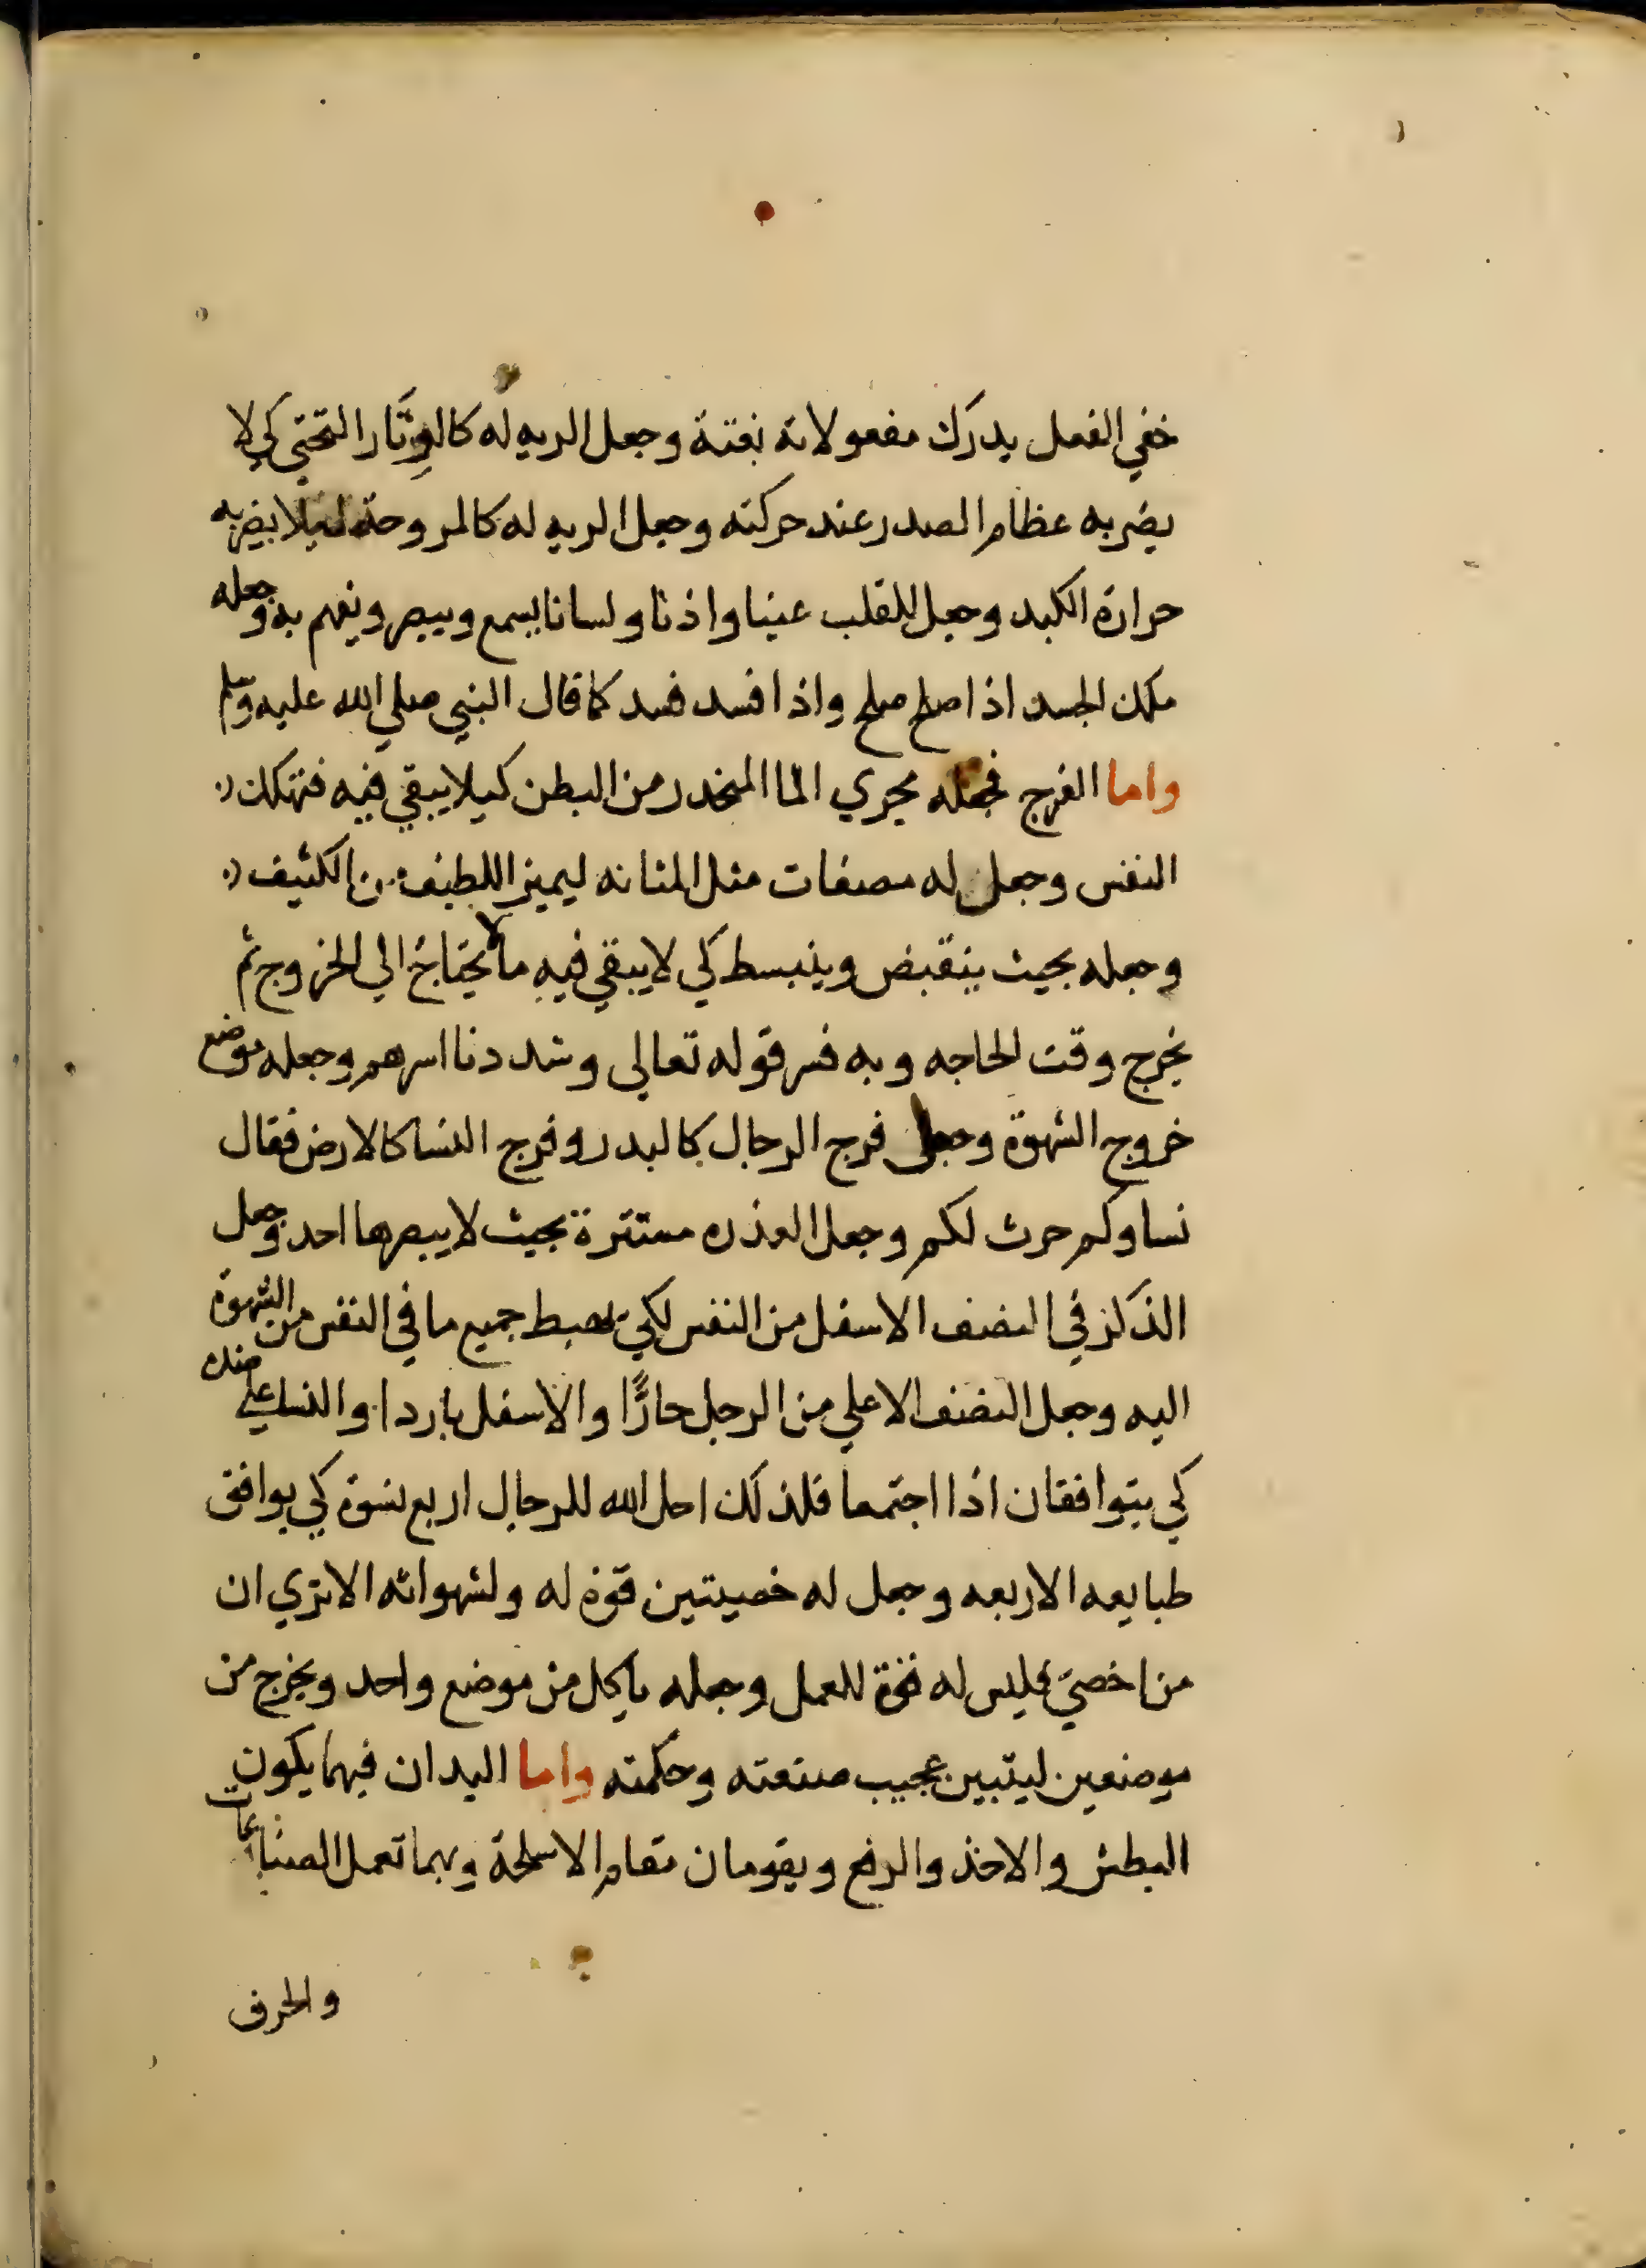 خفي الفعل يدرك مفعولاته بغتة وجعل الريه له كالوثار التحتي كي لا
يضر به عظام الصدر عند حركته وجعل الريه له كالمروحة ليلا يضر به
حرارة الكبد وجعل للقلب عينا واذنا ولسانا يسمع ويبصر ويفهم به وجعله
ملك الجسد اذا صلح صلح واذا فسد فسد كما قال النبي صلي الله عليه وسلم
واما الفرج فجعله مجري الما المنحدر من البطن كيلا يبقي فيه فتهلك
النفس وجعل له مصفات مثل المثانه ليميز اللطيف من الكثيف
وجعله بحيث ينقبض وينبسط كي لا يبقي فيه ما لا يحتاج الي الخروج ثم
يخرج وقت الحاجه وبه فسر قوله تعالي وشددنا اسرهم وجعله موضع
خروج الشهوة وجعل فرج الرجال كالبدر وفرج النسا كالارض فقال
نساوكم حرث لكم وجعل العذره مستترة بحيث لا يبصرها احد وجعل
الذكر في النصف الاسفل من النفس لكي يهبط جميع ما في النفس من الشهوة
اليه وجعل النصف الاعلي من الرجل حارًّا والاسفل باردا والنسا علي ضده
كي يتوافقان اذا اجتمعا فلذلك احل الله للرجال اربع نسوة كي يوافق
طبايعه الاربعه وجعل له خصيتين قوة له ولشهواته الا تري ان
من اخصي فليس له قوة للعمل وجعله ياكل من موضع واحد ويخرج من
موضعين ليتبين عجيب صنعته وحكمته واما اليدان فبهما يكون
البطش والاخذ والرفع ويقومان مقام الاسلحة وبهما تعمل الصناعات
والحرف